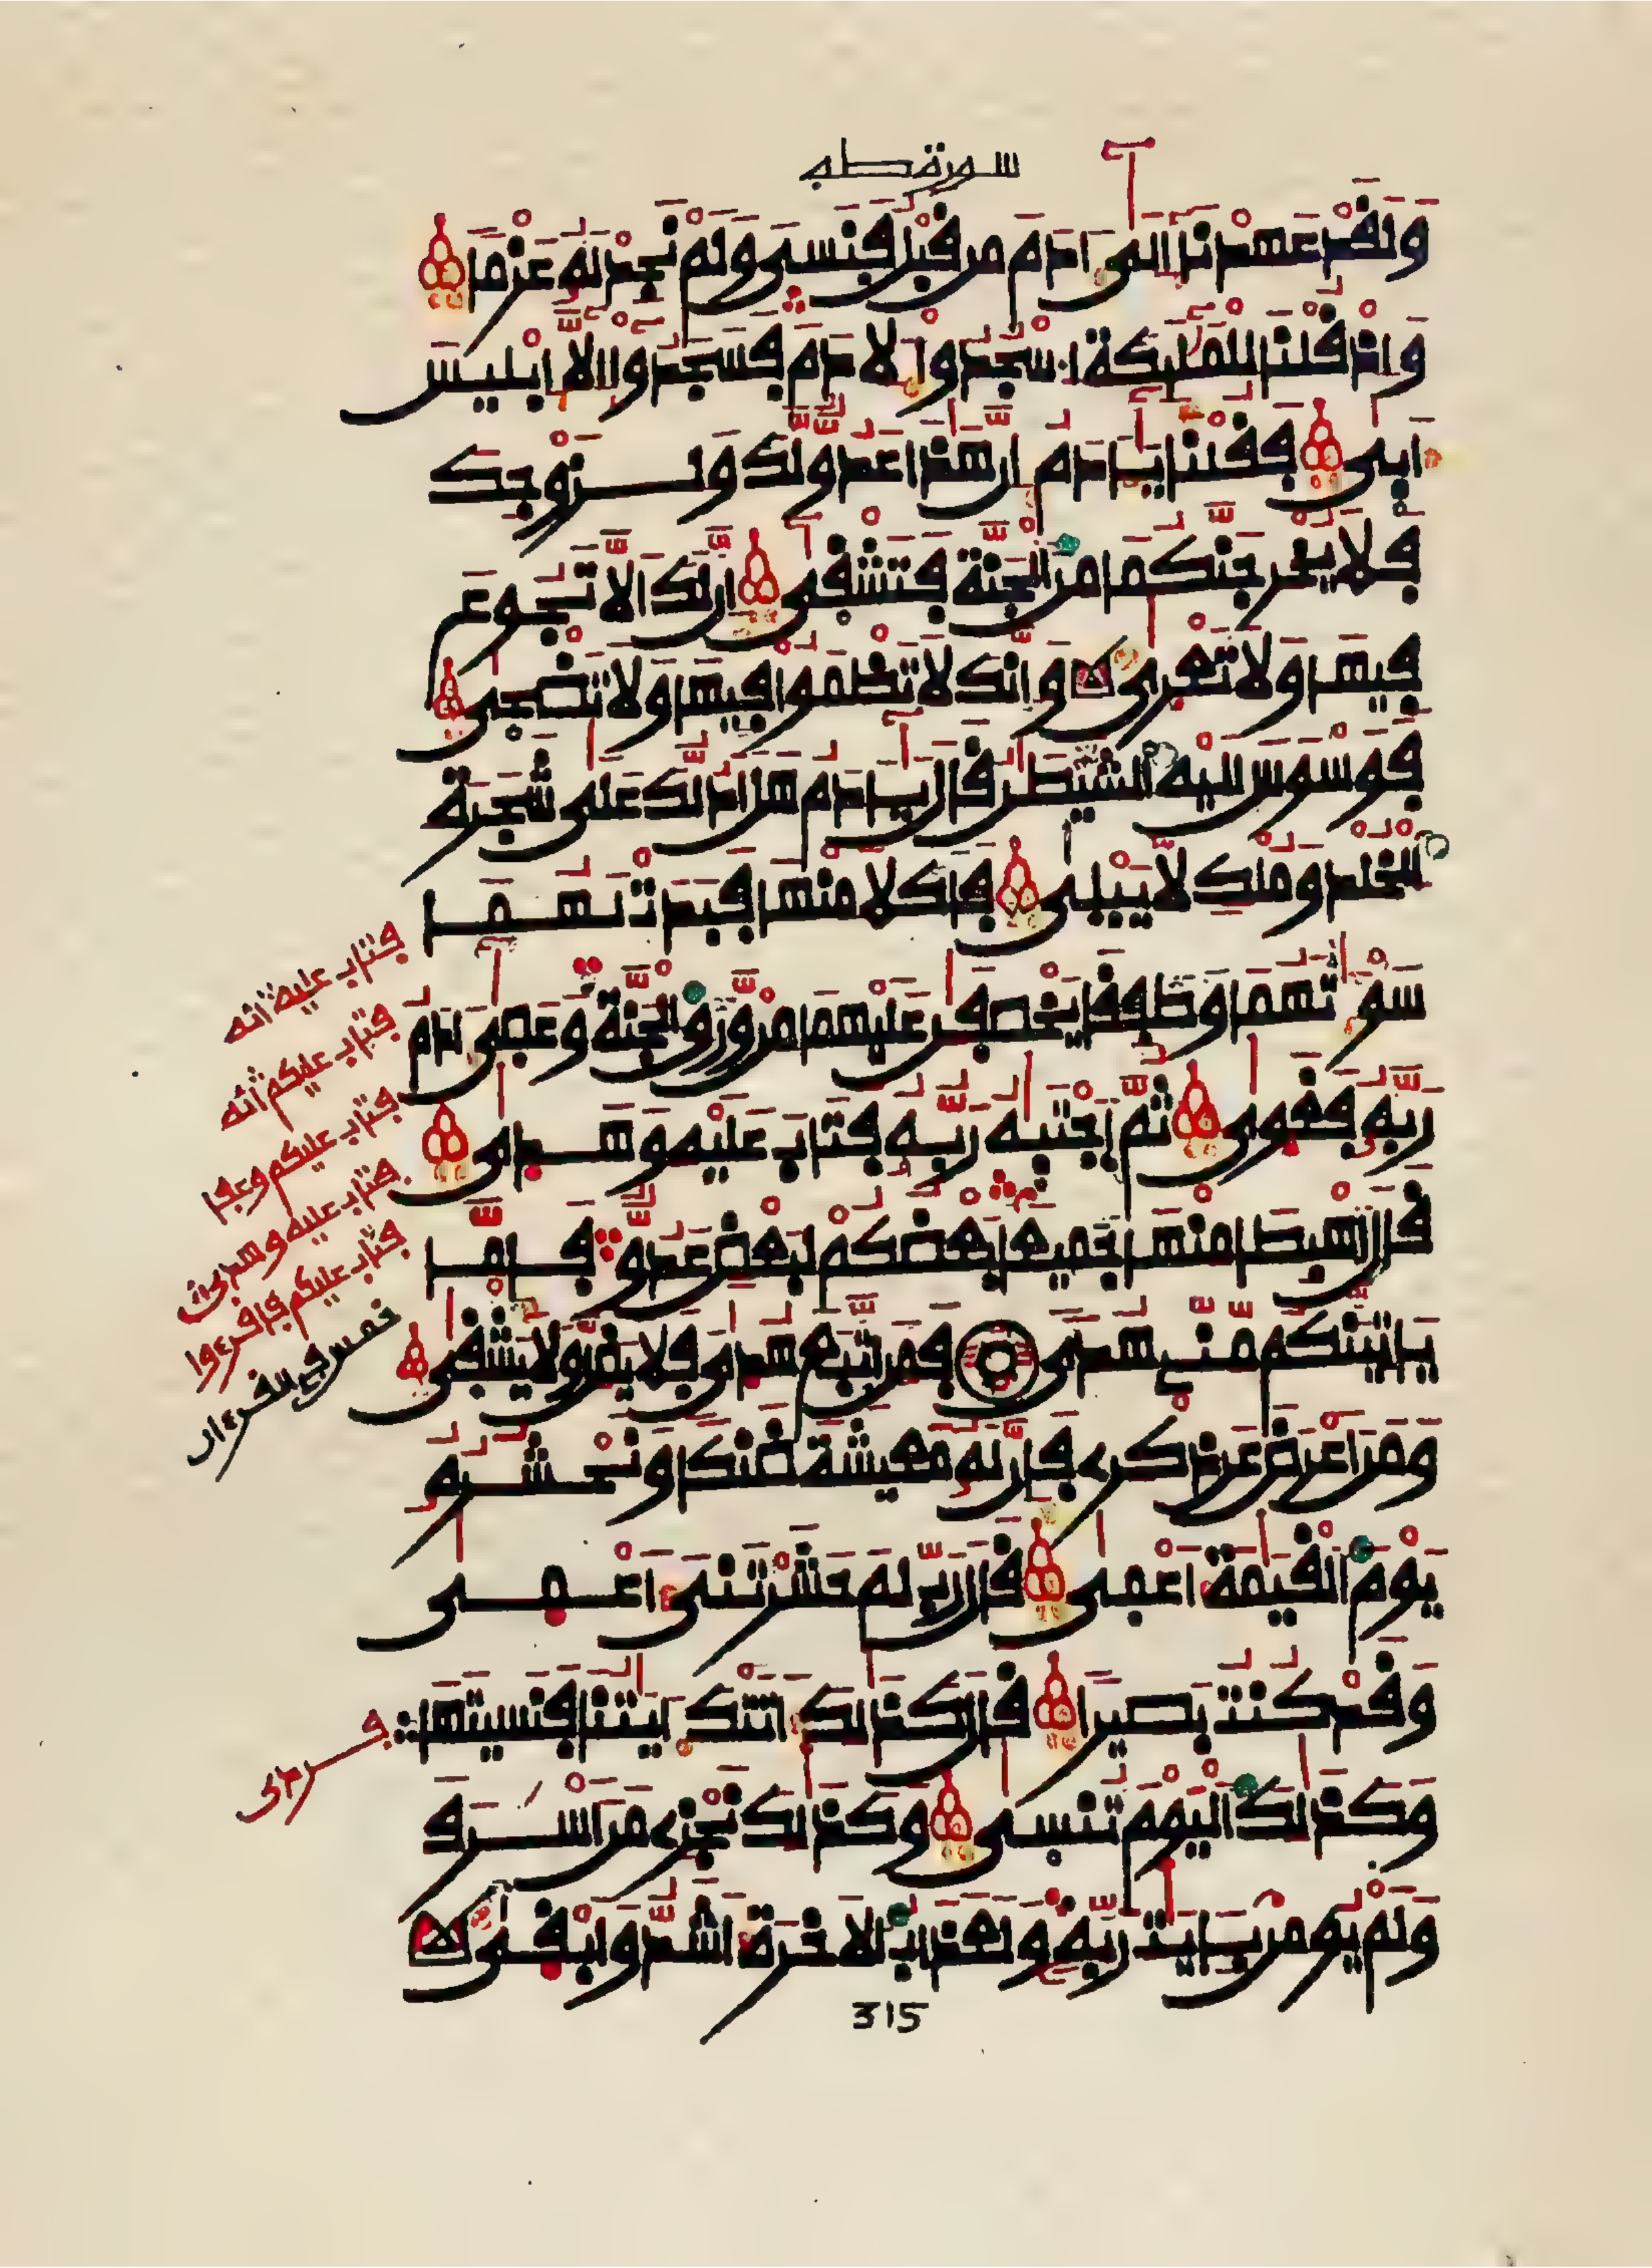 سورة طه
وَلَقَدْ عَهِدْنَا إِلَى ءَادَمَ مِن قَبْلُ فَنَسِيَ وَلَمْ نَجِدْ لَهُ عَزْمًا
وَإِذْ قُلْنَا لِلْمَلَٰئِكَةِ اسْجُدُوا لِأَدَمَ فَسَجَدُوا إِلَّا إِبْلِيسَ
أَبَىٰ فَقُلْنَا يَٰـَٔادَمُ إِنَّ هَٰذَا عَدُوٌّ لَّكَ وَلِزَوْجِكَ
فَلَا يُخْرِجَنَّكُمَا مِنَ الْجَنَّةِ فَتَشْقَىٰ إِنَّ لَكَ أَلَّا تَجُوعَ
فِيهَا وَلَا تَعْرَىٰ وَإِنَّكَ لَا تَظْمَؤُا فِيهَا وَلَا تَضْحَىٰ
فَوَسْوَسَ إِلَيْهِ الشَّيْطَٰنُ قَالَ يَٰـَٔادَمُ هَلْ أَدُلُّكَ عَلَىٰ شَجَرَةِ
الْخُلْدِ وَمُلْكٍ لَّا يَبْلَىٰ فَأَكَلَا مِنْهَا فَبَدَتْ لَهُمَا
سَوْءَٰتُهُمَا وَطَفِقَا يَخْصِفَٰنِ عَلَيْهِمَا مِنْ وَّرَقِ الْجَنَّةِ وَعَصَىٰ ءَادَمُ
رَبَّهُ فَغَوَىٰ ثُمَّ اجْتَبَٰهُ رَبُّهُ فَتَابَ عَلَيْهِ وَهَدَىٰ
قَالَ اهْبِطَا مِنْهَا جَمِيعًا بَعْضُكُمْ لِبَعْضٍ عَدُوٌّ فَإِمَّا
يَأْتِيَنَّكُم مِّنِّي هُدًى فَمَنِ اتَّبَعَ هُدَايَ فَلَا يَضِلُّ وَلَا يَشْقَىٰ
وَمَنْ أَعْرَضَ عَن ذِكْرِي فَإِنَّ لَهُ مَعِيشَةً ضَنكًا وَنَحْشُرُهُ
يَوْمَ الْقِيَٰمَةِ أَعْمَىٰ قَالَ رَبِّ لِمَ حَشَرْتَنِي أَعْمَىٰ
وَقَدْ كُنتُ بَصِيرًا قَالَ كَذَٰلِكَ أَتَتْكَ ءَايَٰتُنَا فَنَسِيتَهَا
وَكَذَٰلِكَ الْيَوْمَ تُنسَىٰ وَكَذَٰلِكَ نَجْزِي مَنْ أَسْرَفَ
وَلَمْ يُومِن بِـَٔايَٰتِ رَبِّهِ وَلَعَذَابُ الْأَخِرَةِ أَشَدُّ وَأَبْقَىٰ
315
فتاب عليه انه
فتاب عليكم انه
فتاب عليكم وعفا
فتاب عليه وهدى
فتاب عليكم فاقرءوا
خمس في القرءان